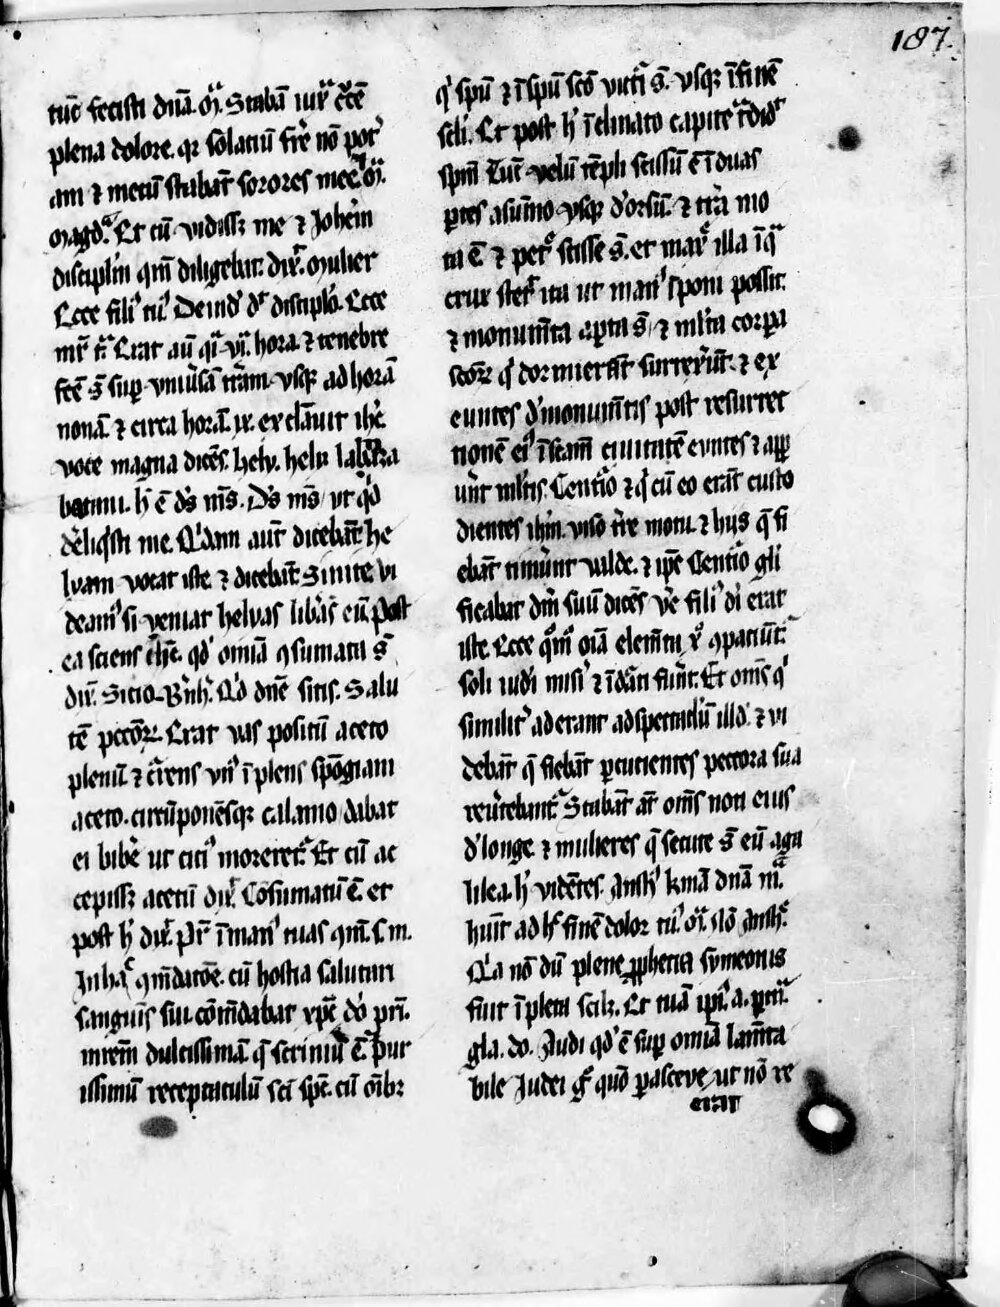 187.
tūc fecisti dnā. M̄. Stabā iux̄ c̄cē
plena dolore. qz solaciū fr̄e nō pot̄
am ⁊ mecū stabāt sorores mee. M̄.
magd̄. Et cū vidissz me ⁊ Joh'em
discipl'm qm̄ diligebat. dix̄. Mulier
Ecce fili' tu' Deind' d̄r discipl'o. Ecce
mr̄ t̄. Erat aū q̄i vj. hora ⁊ tenebre
fc̄e s̄t sup vniu'sā tr̄am vsqz ad horā
nonā. ⁊ circa horā. ix. exclāuit ih̄c
voce magna dicēs. hely. hely lama
batani. h̄ ē d's m̄s. D's m̄s ut q'd
de'liq'sti me. Q'dam aut̄ dicebāt he
lyam vocat iste ⁊ dicebāt Sinite vi
deam' si veniat helyas libans eū Post
ea sciens ih̄c. qd' omīa ɔsumata s̄t
dix̄. Sitio. Q'd dn̄e sitis. Salu
tē pccōꝝ. Erat vas positū aceto
plenū ⁊ c̄rens vn' īplens spōgiam
aceto. circūponēsqz calamo dabat
ei bibe' ut citi' moreret̄. Et cū ac
cepissz acetū dix̄ Cōsumatū ē. et
post h' dix̄. Pr̄ ī man' tuas qm̄. s. m.
qm̄datoē. cū hostia salutari
sanguīs sui cōm̄dabat xp̄c d'o pr̄i.
mr̄em dulcissimā q̄ scriniū ē pur
issimū receptaculū sc̄i spc̄. cū oībz
q' spū ⁊ ī spū sc̄o victi' s̄t. vsqz ī finē
sc̄li. Et post h' īclinato capite t̄did'
spm̄ Tūc velū tēpli scissū ē ī duas
ptes a sūmo vsqz d'orsū. ⁊ tr̄a mo
ta ē ⁊ pet̄ scisse s̄t. et max̄ illa ī q̄
crux stet̄ ita ut man' īponi possit.
⁊ monum̄ta apta s̄t ⁊ ml̄ta corpa
sc̄oꝝ q' dormierāt surrexe'ūt. ⁊ ex
euntes d' monum̄tis post resurrec
tionē ei' ī sc̄am ciuitatē euntes ⁊ app
ue'nt ml̄tis. Centu'o ⁊ q' cū eo erāt custo
dientes ih̄m. viso tr̄e motu. ⁊ hijs q̄ fi
ebāt timue'nt valde. ⁊ ip̄e Centu'o gl̄i
ficabat dm̄ suū dicēs ve' fili' di' erat
iste. Ecce q̄m̄ oīa elem̄ta x̄ ɔpaciūt̄.
soli iudi' mis'i ⁊ īd̄ati fiūt. Et om̄s q'
simil'r aderant ad spectac'lū ill'd ⁊ vi
debāt q̄ fiebāt pcucientes pectora sua
reu'tebant̄ Stabāt at̄ om̄s noti eius
d' longe. ⁊ mulieres q̄ secute s̄t eū a ga
lilea. h' vidētes. Ansh' kmā dnā m̄.
huīt ad h' finē dolor tu'. M̄. Nō Ansh̄.
Q'a nōdū plene pphecia symeonis
fiūt īpleta scilz. Et tuā ipi'. a. ptn̄.
gla. do. Audi qd' ē sup omīa lam̄ta
bile Judei g' quō pasceve, ut nō re
erant